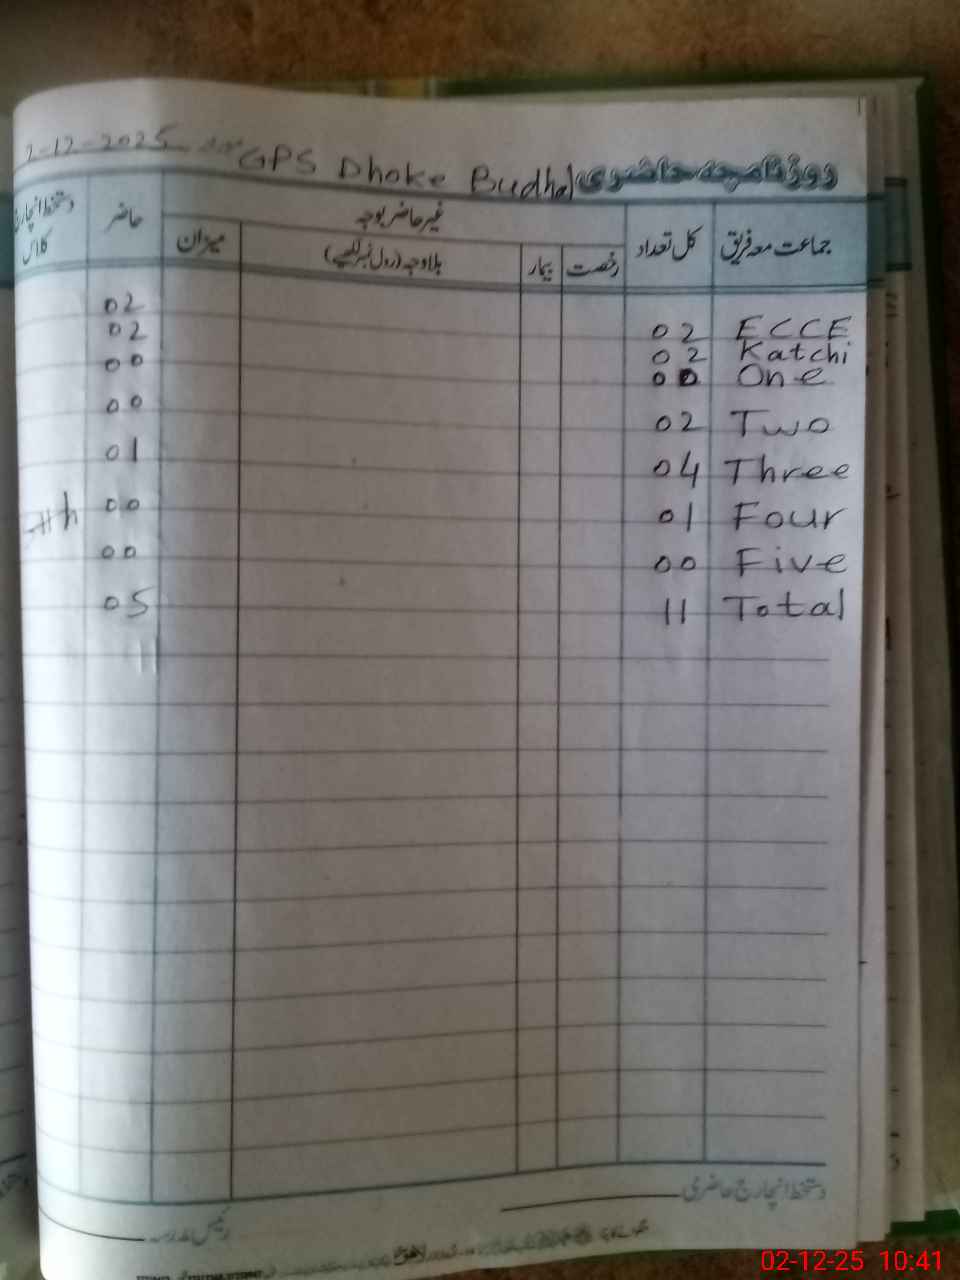 روزنامچہ حاضری GPS Dhoke Budhal 2-12-2025
جماعت معہ فریق کل تعداد غیر حاضر بوجہ حاضر دستخط انچارج کلاس
رخصت بیمار بلاوجہ (رول نمبر لکھیے) میزان
ECCE 02 02
Katchi 02 02
One 00 00
Two 02 00
Three 04 01
Four 01 00
Five 00 00
Total 11 05
دستخط انچارج حاضری
رئیس مدرسہ
02-12-25 10:41